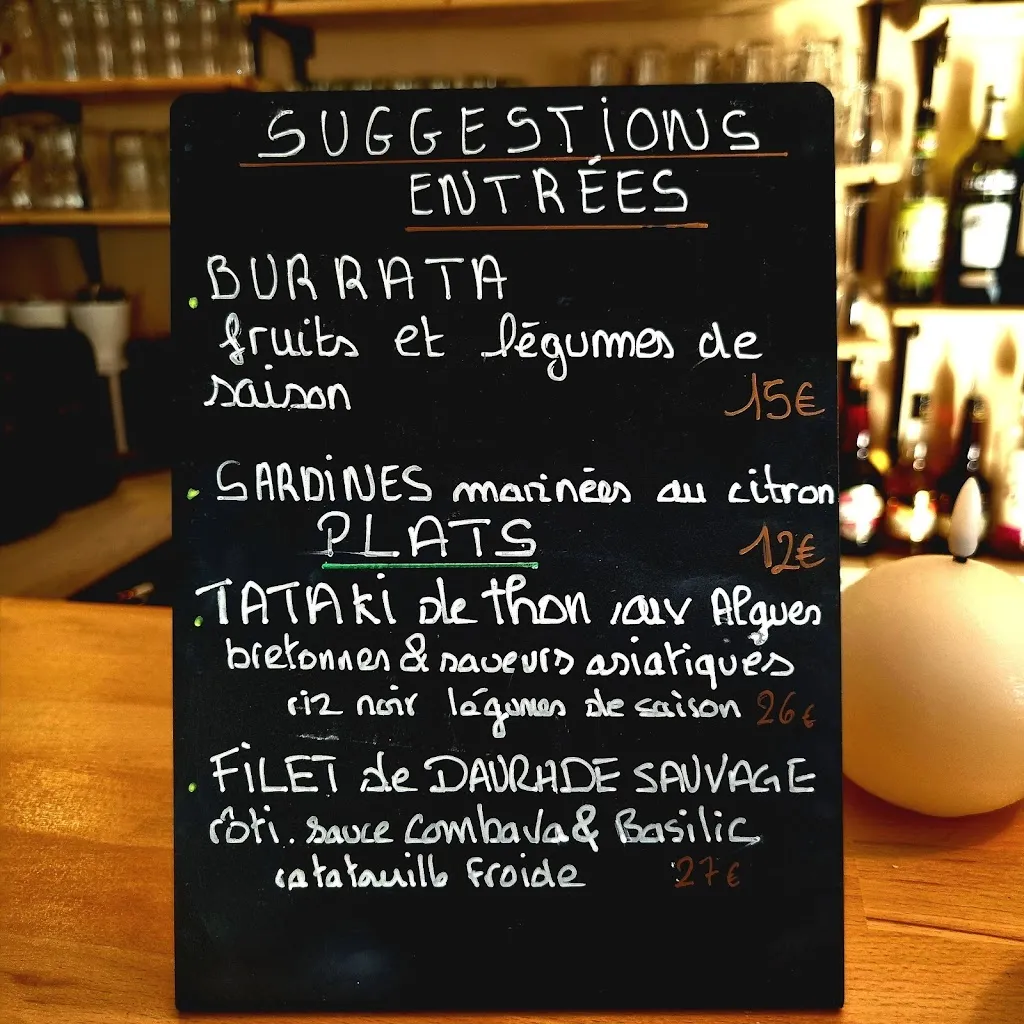 SUGGESTIONS
ENTRÉES
. BURRATA
fruits et légumes de
saison 15€
. SARDINES marinées au citron
PLATS 12€
. TATAKI de thon aux Algues
bretonnes & saveurs asiatiques
riz noir légumes de saison 26€
. FILET de DAURADE SAUVAGE
rôti. sauce Combava & Basilic
ratatouille froide 27€